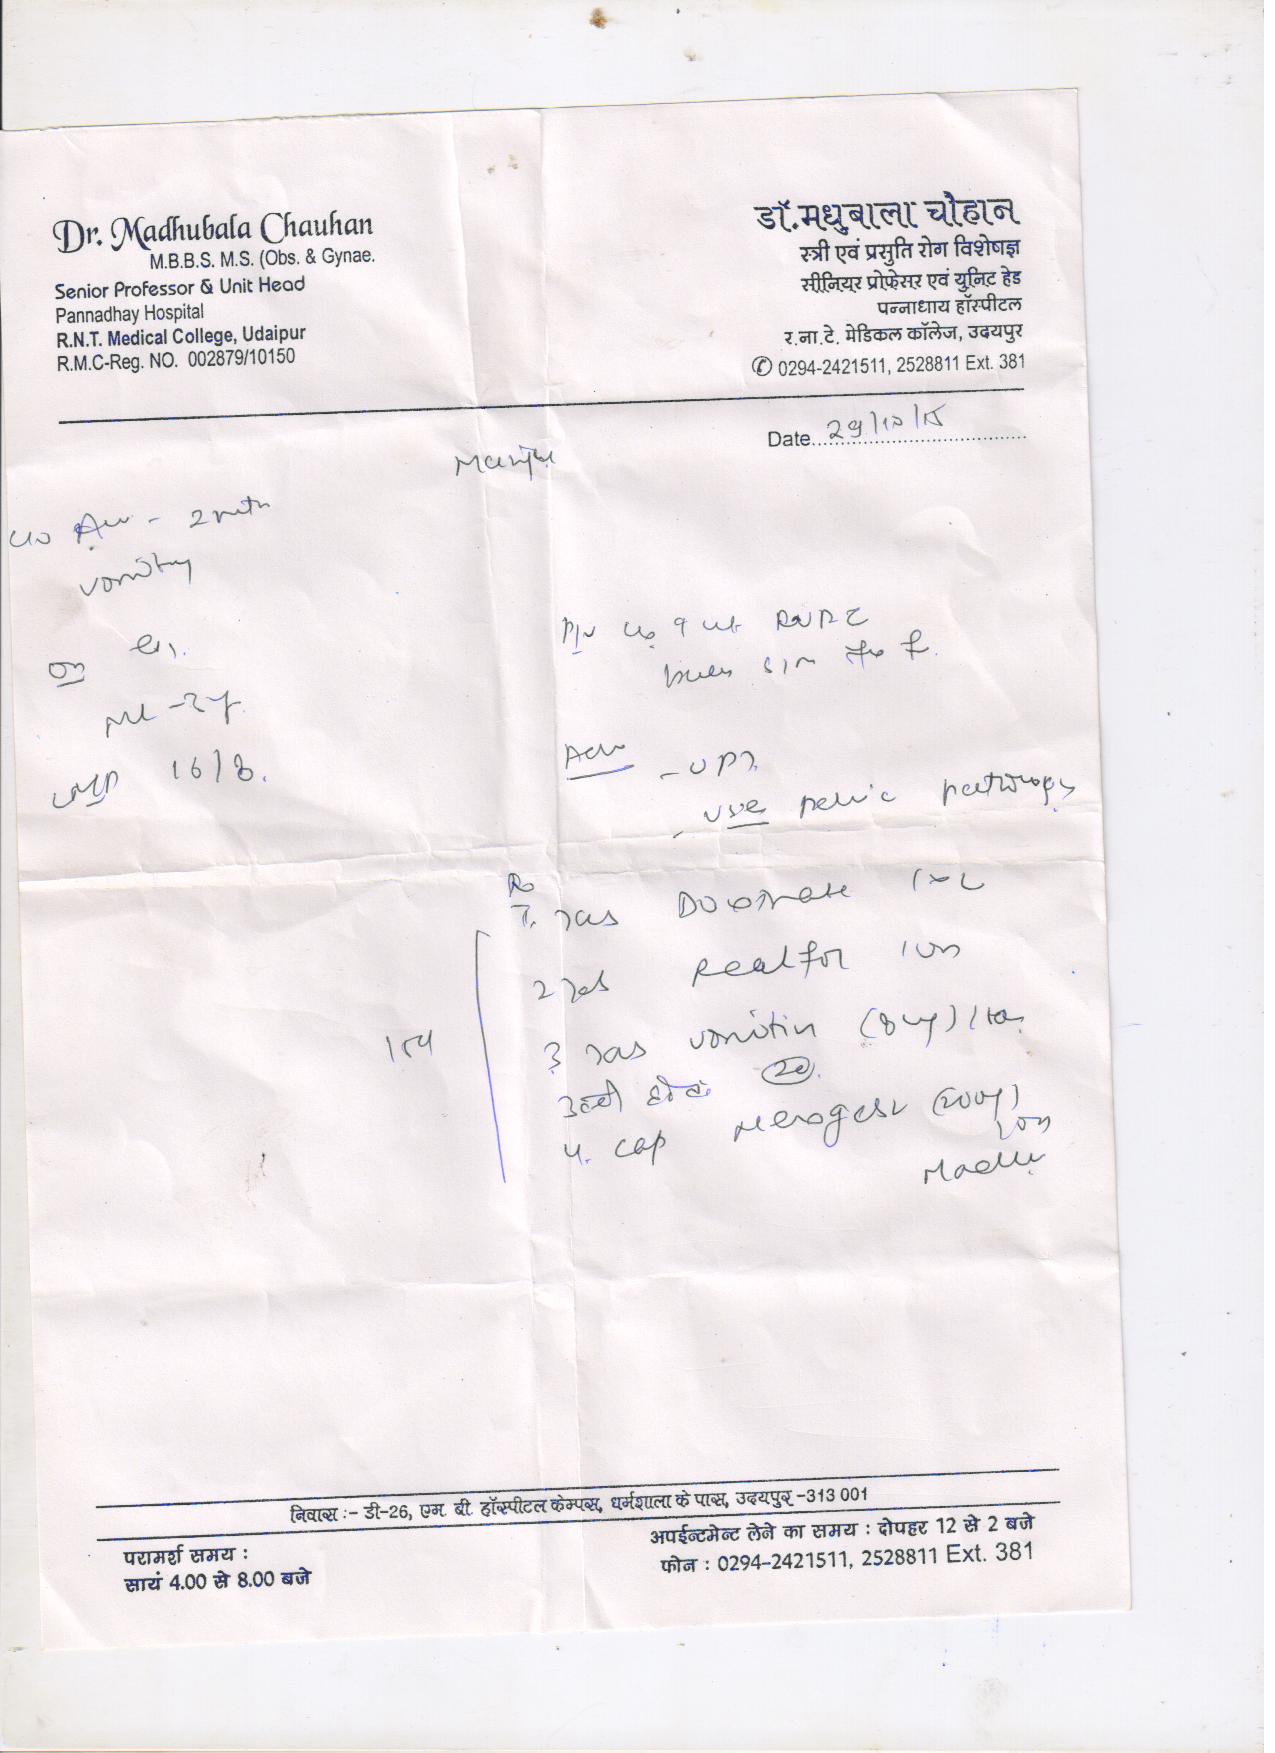 Dr. Madhubala Chauhan
M.B.B.S. M.S. (Obs. & Gynae.
Senior Professor & Unit Head
Pannadhay Hospital
R.N.T. Medical College, Udaipur
R.M.C-Reg. NO. 002879/10150
डॉ.मधुबाला चौहान
स्त्री एवं प्रसुति रोग विशेषज्ञ
सीनियर प्रोफेसर एवं युनिट हेड
पन्नाधाय हॉस्पीटल
र.ना.टे. मेडिकल कॉलेज, उदयपुर
✆ 0294-2421511, 2528811 Ext. 381
Date 29/10/15
Manju
2 mth
vomiting
LMP 16/8.
P/V
Adv - UPT
- USG pelvic pathology
Rx
1. Tab Doxinate
2 Tab Realfor
3 Tab Vomitin (8mg)
उल्टी होने 20
4. Cap Merogest (200mg)
Madhu
निवास :- डी-26, एम. बी. हॉस्पीटल केम्पस, धर्मशाला के पास, उदयपुर -313 001
परामर्श समय :
सायं 4.00 से 8.00 बजे
अपईन्टमेन्ट लेने का समय : दोपहर 12 से 2 बजे
फोन : 0294-2421511, 2528811 Ext. 381